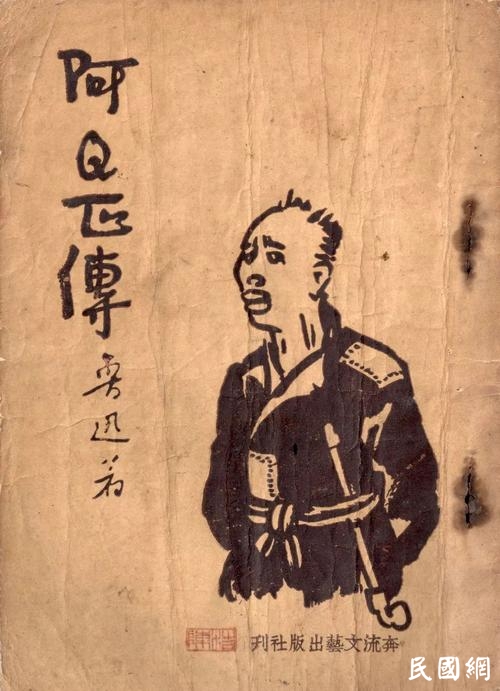 阿Q正傳
魯迅著
奔流文藝出版社刊
民國網